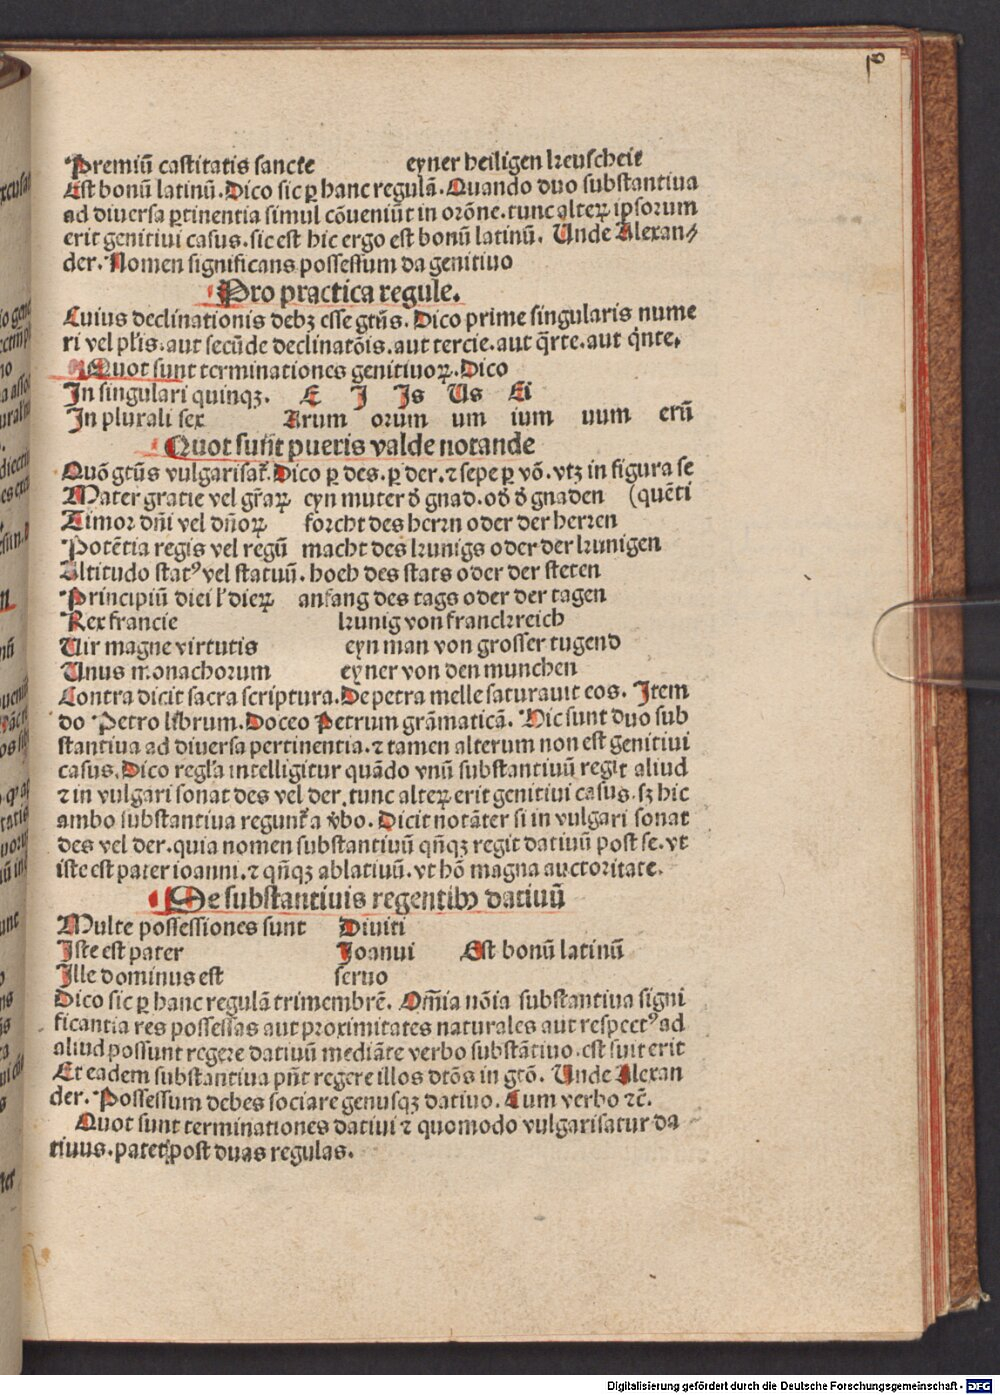 Premiū castitatis sancte eyner heiligen keuscheit
Est bonū latinū. Dico sic ꝑ hanc regulā. Quando duo substantiua
ad diuersa ꝑtinentia simul cōueniūt in orōne. tunc alteꝝ ipsorum
erit genitiui casus. sic est hic ergo est bonū latinū. Unde Alexan⸗
der. Nomen significans possessum da genitiuo
Pro practica regule.
Cuius declinationis debꝫ esse gtūs. Dico prime singularis nume
ri vel pl̄is. aut secūde declinatōis. aut tercie. aut q̄rte. aut q̇nte.
Quot sunt terminationes genitiuoꝝ. Dico
In singulari quinqꝫ. E J Js Us Ei
In plurali sex Arum orum um ium uum erū
Quot sunt pueris valde notande
Quō gtūs vulgarisat̄. Dico ꝑ des. ꝑ der. ⁊ sepe ꝑ vō. vtꝫ in figura se
Mater gratie vel gr̄aꝝ eyn muter d̄ gnad. od̄ d̄ gnaden (quēti
Timor dn̄i vel dn̄oꝝ forcht des herrn oder der herren
Potētia regis vel regū macht des kunigs oder der kunigen
Altitudo statꝰ vel statuū. hoch des stats oder der steten
Principiū diei l̄ dieꝝ anfang des tags oder der tagen
Rex francie kunig von franckreich
Uir magne virtutis eyn man von grosser tugend
Unus monachorum eyner von den munchen
Contra dicit sacra scriptura. De petra melle saturauit eos. Item
do Petro librum. Doceo Petrum grāmaticā. Hic sunt duo sub
stantiua ad diuersa pertinentia. ⁊ tamen alterum non est genitiui
casus. Dico regl̄a intelligitur quādo vnū substantiuū regit aliud
⁊ in vulgari sonat des vel der. tunc alteꝝ erit genitiui casus. sꝫ hic
ambo substantiua regunt̄ a v̄bo. Dicit notāter si in vulgari sonat
des vel der. quia nomen substantiuū qn̄qꝫ regit datiuū post se. vt
iste est pater ioanni. ⁊ qn̄qꝫ ablatiuū. vt hō magna auctoritate.
De substantiuis regentibꝰ datiuū
Multe possessiones sunt Diuiti
Iste est pater Joanui Est bonū latinū
Ille dominus est seruo
Dico sic ꝑ hanc regulā trimembrē. Om̄ia nōia substantiua signi
ficantia res possessas aut proximitates naturales aut respectꝰ ad
aliud possunt regere datiuū mediāte verbo substātiuo. est fuit erit
Et eadem substantiua pn̄t regere illos dtōs in gtō. Unde Alexan
der. Possessum debes sociare genusqꝫ datiuo. Cum verbo ⁊c̄.
Quot sunt terminationes datiui ⁊ quomodo vulgarisatur da
tiuus. patet post duas regulas.
Digitalisierung gefördert durch die Deutsche Forschungsgemeinschaft - DFG